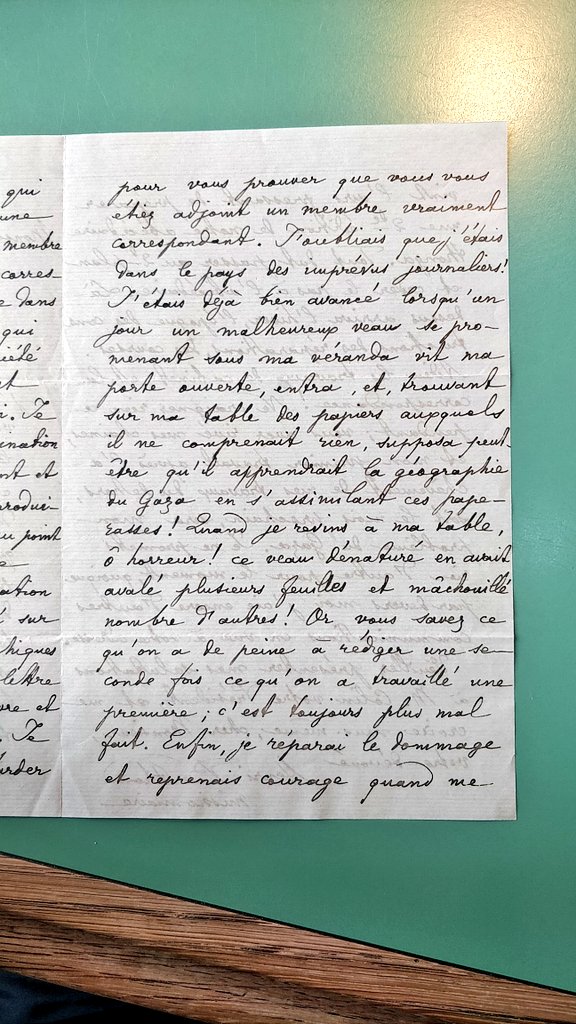 qui
une
membre
corres-
e dans
qui
iété
t
i. Je
ination
nt et
produi-
u point
e
ation
sur
phiques
lettre
re et
. Je
arder
pour vous prouver que vous vous
étiez adjoint un membre vraiment
correspondant. J'oubliais que j'étais
dans le pays des imprévus journaliers!
J'étais déjà bien avancé lorsqu'un
jour un malheureux veau se pro-
menant sous ma véranda vit ma
porte ouverte, entra, et, trouvant
sur ma table des papiers auxquels
il ne comprenait rien, supposa peut-
être qu'il apprendrait la géographie
du Gaza en s'assimilant ces pape-
rasses! Quand je revins à ma table,
ô horreur! ce veau dénaturé en avait
avalé plusieurs feuilles et mâchouillé
nombre d'autres! Or vous savez ce
qu'on a de peine à rédiger une se-
conde fois ce qu'on a travaillé une
première; c'est toujours plus mal
fait. Enfin, je réparai le dommage
et reprenais courage quand me-